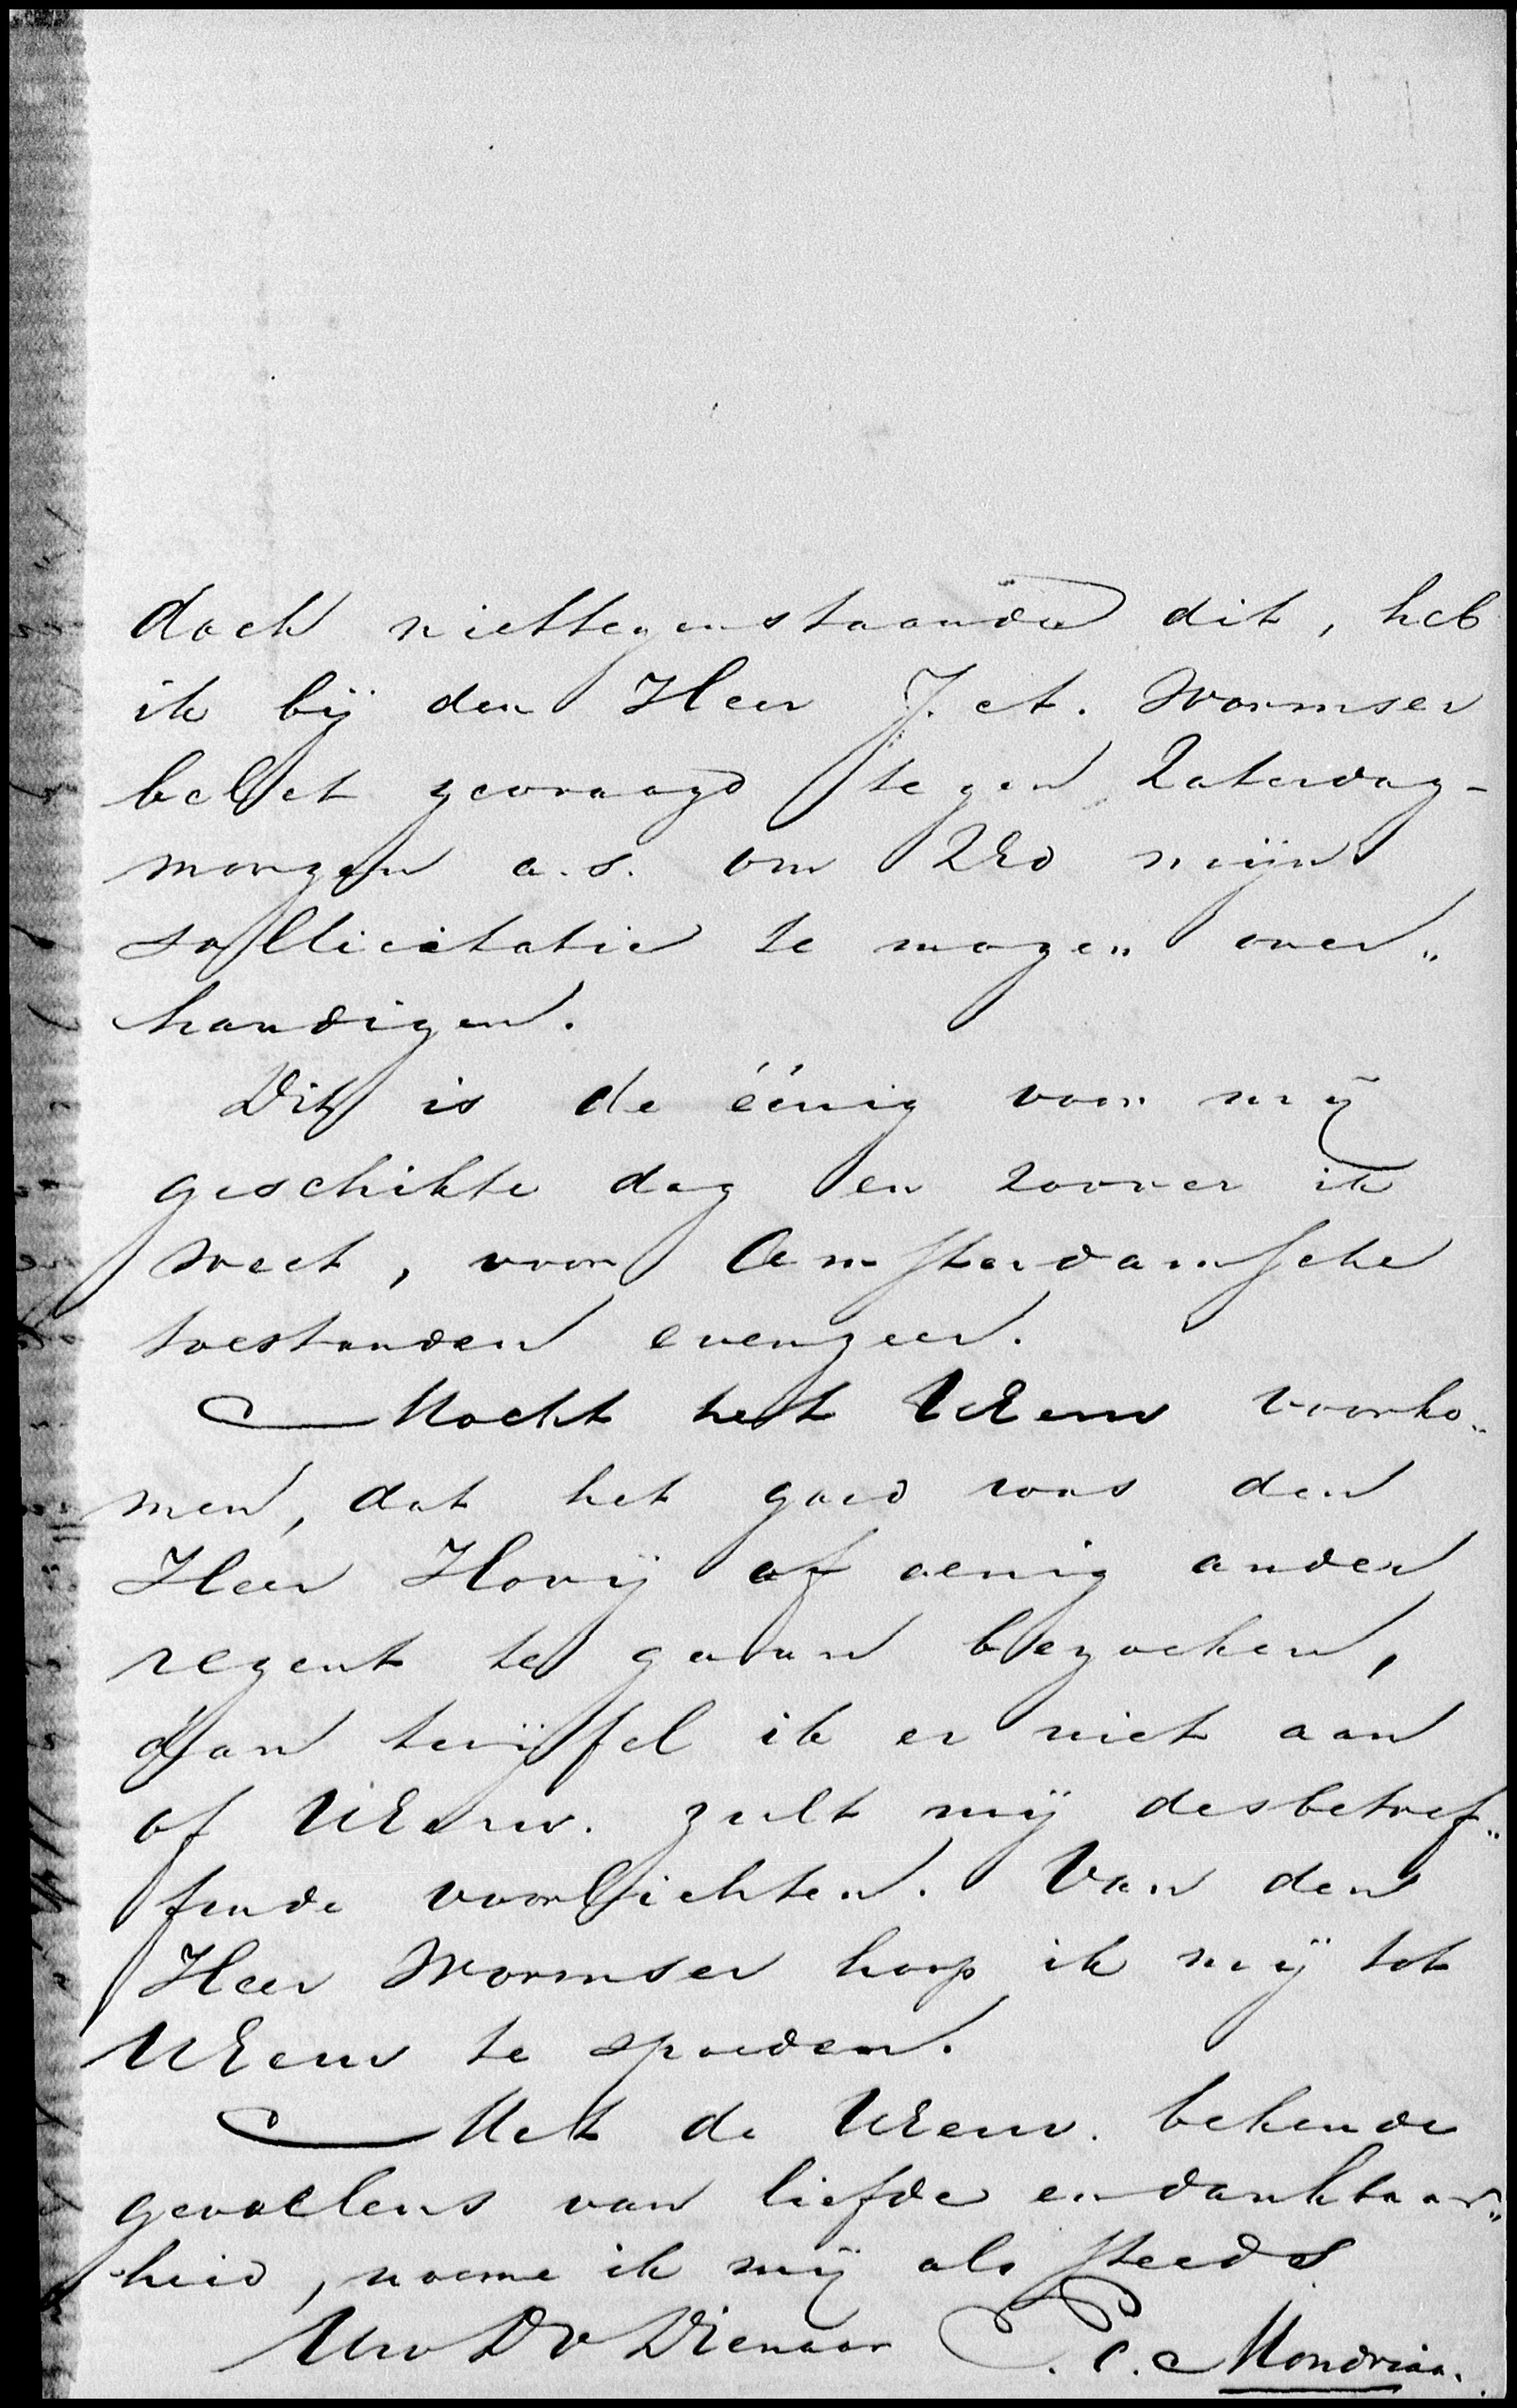 doch niettegenstaande dit, heb
ik bij den Heer J. A. Wormser
belet gevraagd tegen Zaterdag-
morgen a.s. om ZEd mijn
sollicitatie te mogen over„
handigen.
Dit is de éénig voor mij
geschikte dag en zoover ik
weet, voor Amsterdamsche
toestanden evenzeer.
Mocht het UEerw voorko„
men, dat het goed was den
Heer Hovij of eenig ander
regent te gaan bezoeken,
dan twijfel ik er niet aan
of UEerw. zult mij desbetref„
fende voorlichten. Van den
Heer Wormser hoop ik mij tot
UEerw te spoeden.
Met de UEerw. bekende
gevoelens van liefde en dankbaar„
heid, noeme ik mij als steeds
Uw Dv Dienaar P. C. Mondriaan.